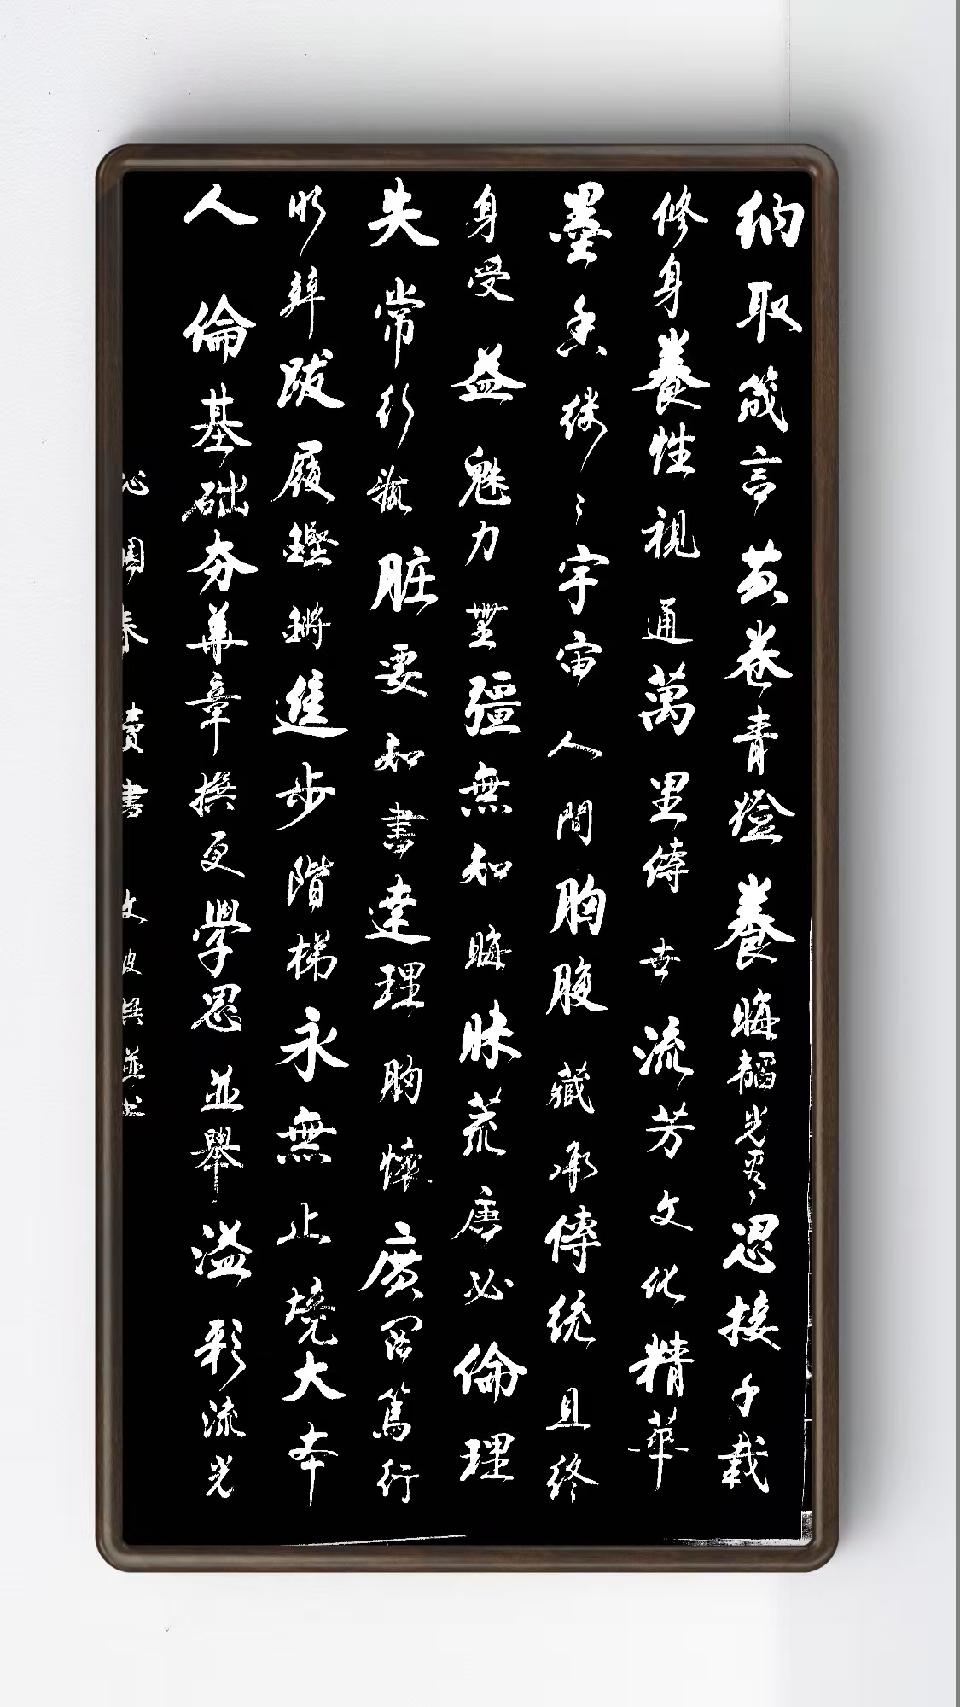 納取箴言黄卷青燈養晦韜光思接千載
修身養性視通萬里傳世流芳文化精華
墨香繞々宇宙人間胸腹藏承傳統且終
身受益魁力無疆無知晦昧荒唐必倫理
失常行嶽脏要知書達理胸懷廣闊篤行
明辨跋履鏗鏘進步階梯永無止境大本
人倫基礎夯華章撰更學思並舉溢彩流光
沁園春 讀書 文波撰並書